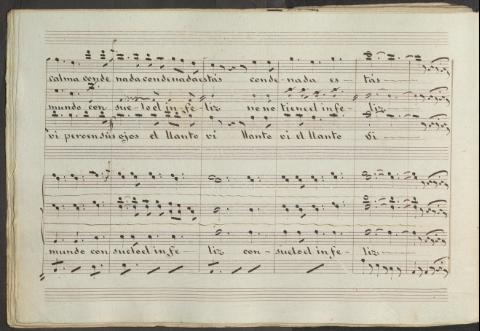 calma conde nada condenada estás conde - nada es - tás
mundo con sue - lo el in fe - liz ne no tiene el in fe - liz
vi pero en sus ojos el llanto vi llanto vi el llanto vi
mundo con suelo el in fe - liz con - suelo el in fe - liz